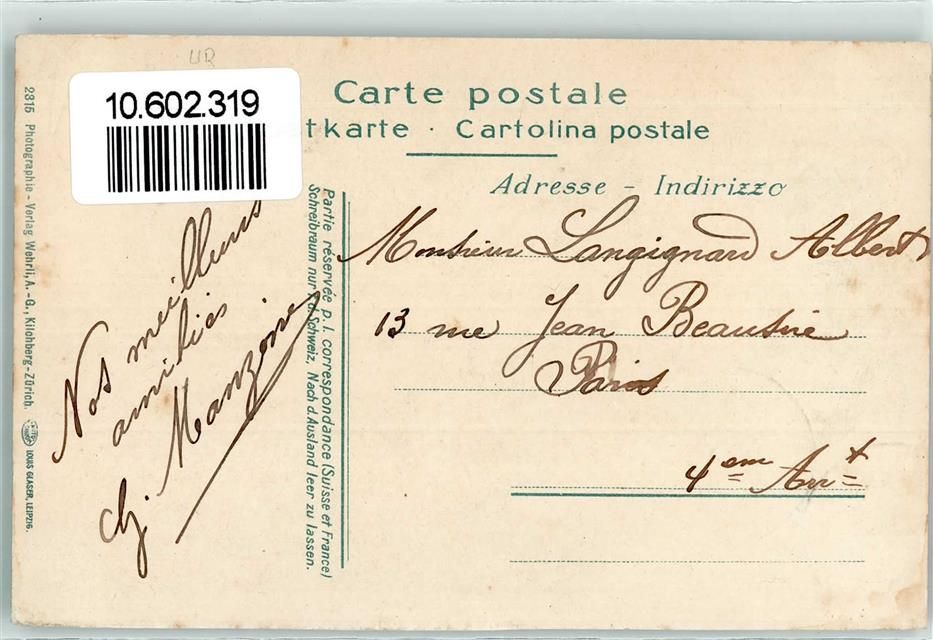 10.602.319
Carte postale
tkarte · Cartolina postale
Adresse - Indirizzo
Monsieur Langignard Albert
13 rue Jean Beausire
Paris
4em Arrt
Nos meilleures
amitiés
Manzoni
Partie réservée p. l. correspondance (Suisse et France)
Schreibraum nur f. d. Schweiz, Nach d. Ausland leer zu lassen.
2315 Photographie - Verlag Wehrli, A.-G., Kilchberg-Zürich.
LOUIS GLASER, LEIPZIG.